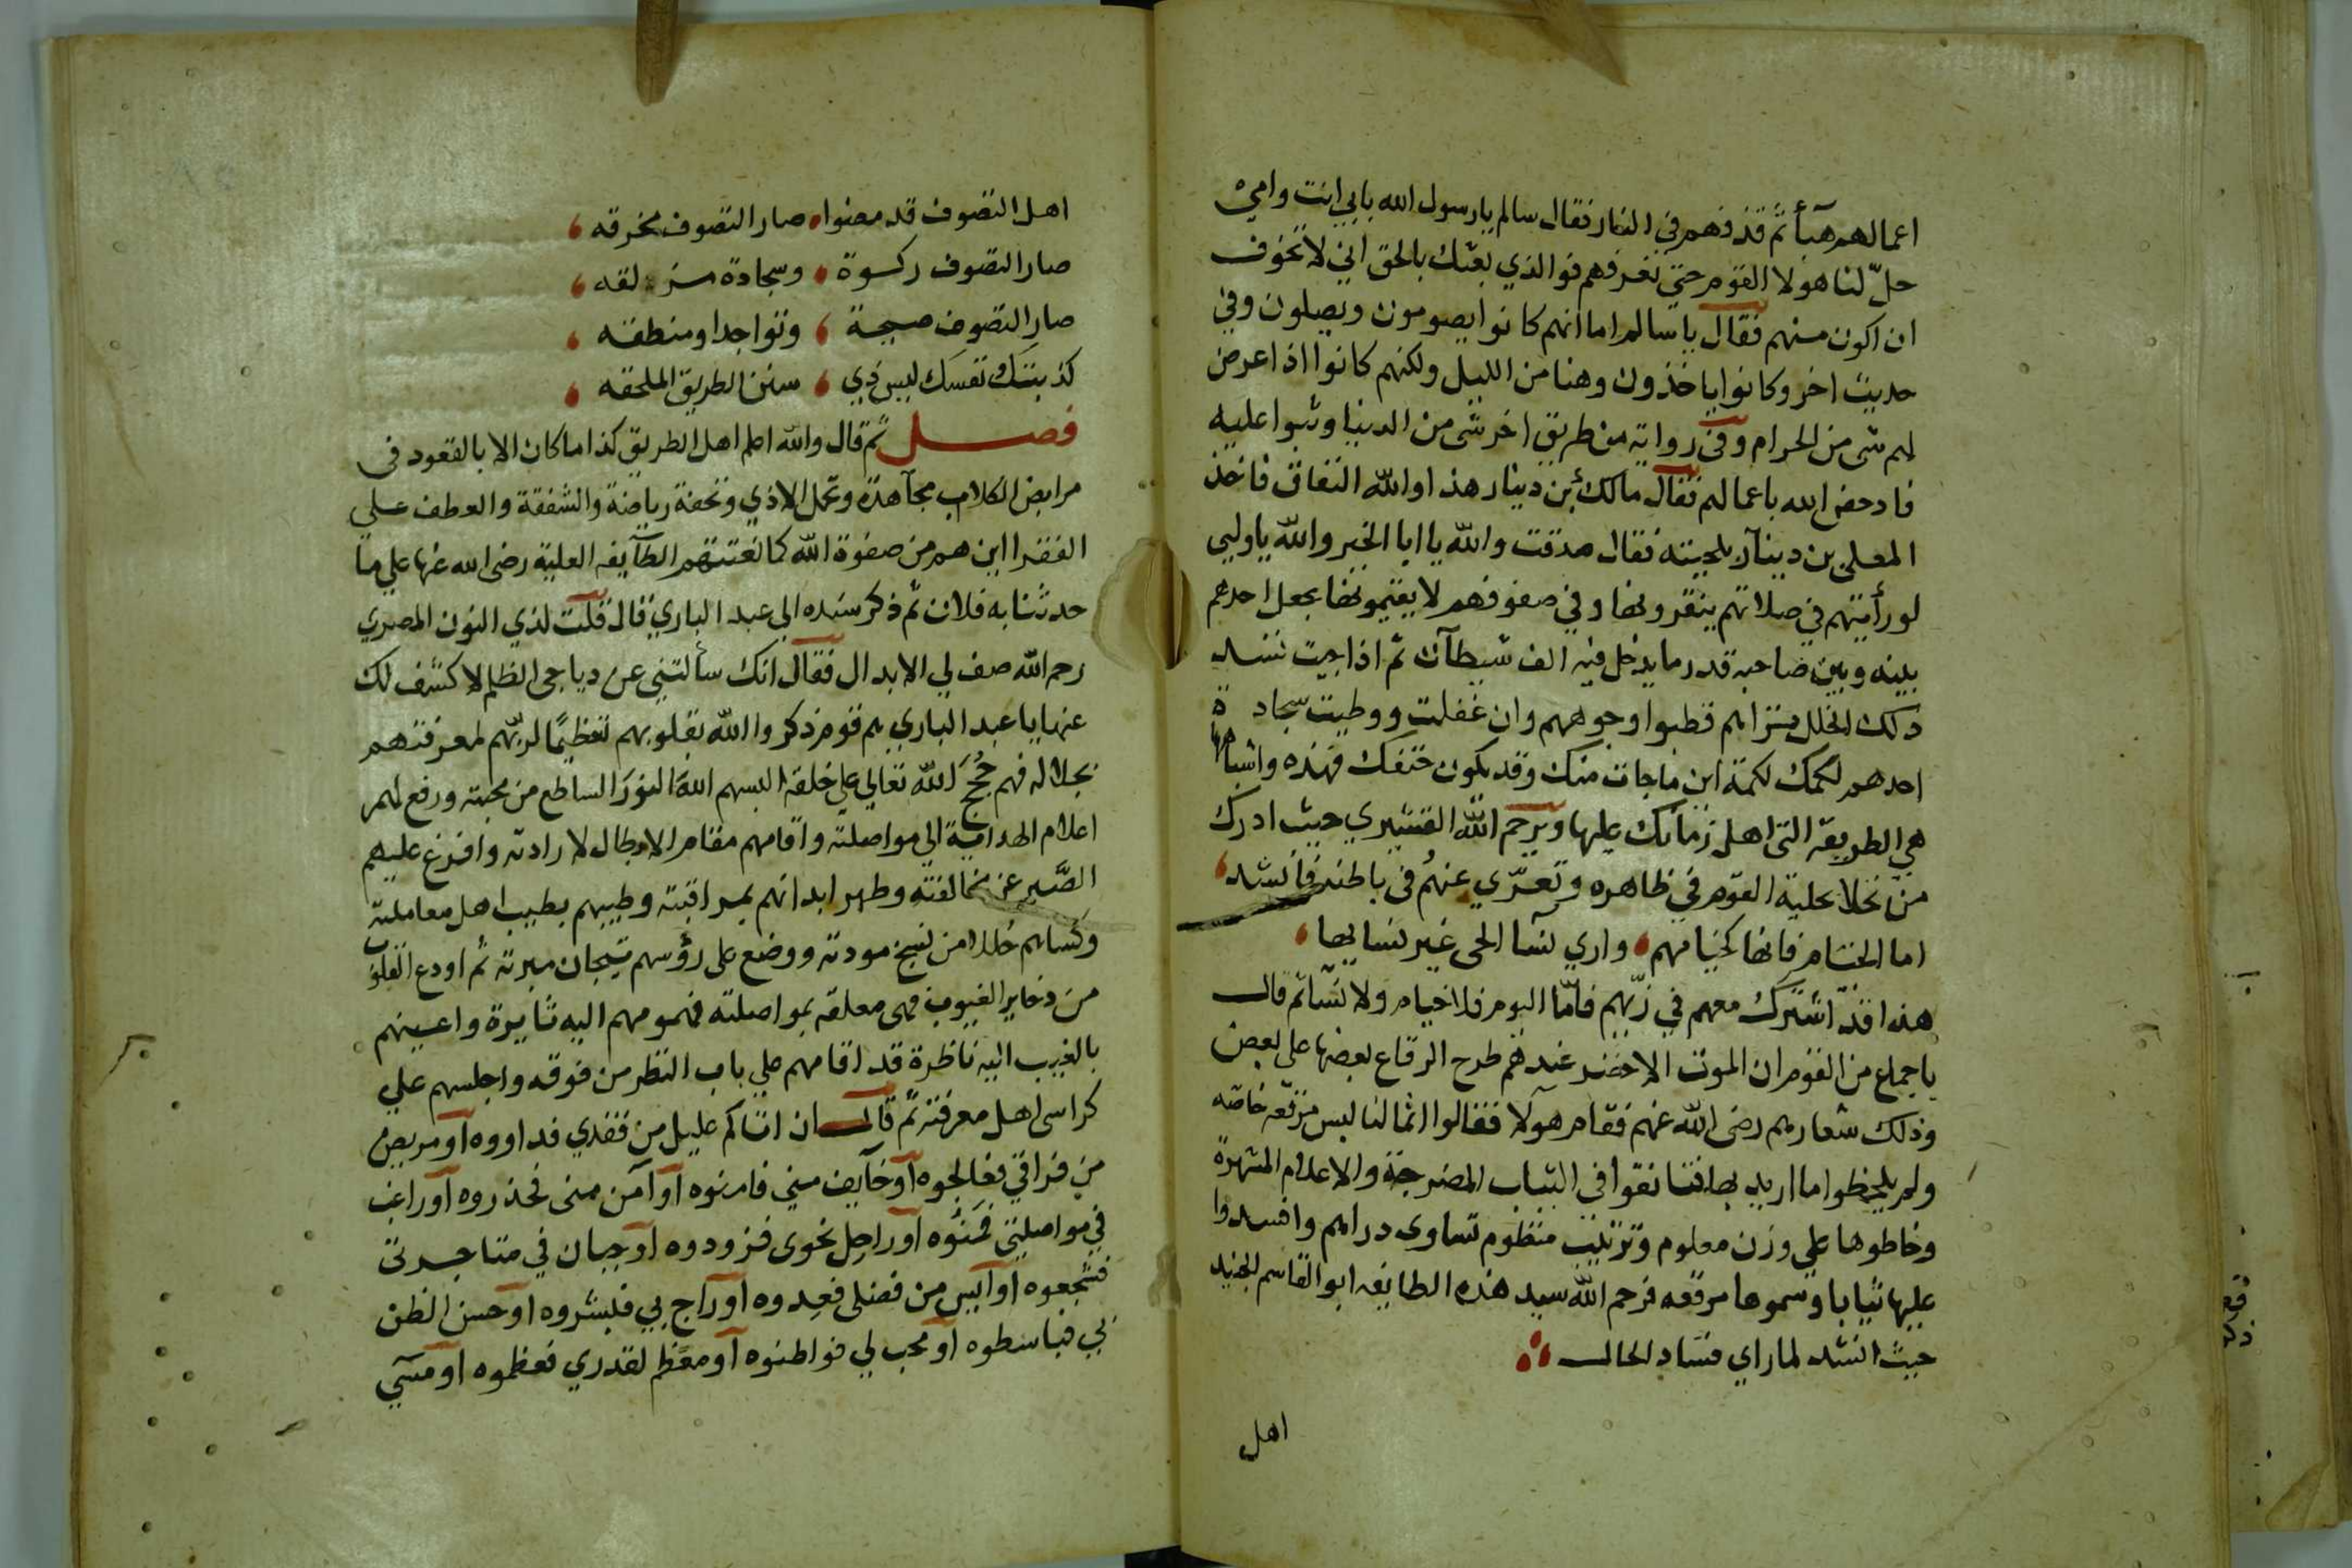 اعمالهم هبآ ثم قذفهم في النار فقال سالم يارسول الله بابي انت وامي
حلّ لنا هولا القوم حتي نعرفهم فوالذي بعثك بالحق اني لاتخوف
ان اكون منهم فقال ياسالم اما انهم كانوا يصومون ويصلون وفي
حديث اخر وكانوا ياخذون وهنا من الليل ولكنهم كانوا اذا عرض
لهم شي من الحرام وفي رواته من طريق اخر شي من الدنيا وثبوا عليه
فادحض الله باعمالهم فقال مالك بن دينار هذا والله النفاق فاخذ
المعلي بن دينار بلحيته فقال صدقت والله ياابا الخير والله ياوليي
لو رأيتهم في صلاتهم ينقرونها وفي صفوفهم لا يقيمونها يجعل احدهم
بينه وبين صاحبه قدر ما يدخل فيه الف شيطان ثم اذا جيت تسد
ذلك الخلل بينهم قطبوا وجوههم وان غفلت ووطيت سجادة
احدهم لكمك لكمة اين ما جات منك وقد يكون حتفك فهذه واشباهها
هي الطريقة التي اهل زمانك عليها ويرحم الله القشيري حيث ادرك
من تحلا بحلية القوم في ظاهره وتعرّي عنهم في باطنه فانشد
اما الخيام فانها كخيامهم واري نسا الحي غير نسايها
هذا قد اشترك معهم في زيهم فامّا اليوم فلا خيام ولا نسا ثم قال
باجماع من القوم ان الموت الاخضر عندهم طرح الرقاع بعضها علي بعض
وذلك شعارهم رضي الله عنهم فقام هولا فقالوا انما لنا لبس مرقعه خاصه
ولم يلحظوا ما اريد بها فتانقوا في الثياب المضرجة والاعلام المشهرة
وخاطوها علي وزن معلوم وترتيب منظوم تساوي دراهم وافسدوا
عليها ثيابا وسموها مرقعه فرحم الله سيد هذه الطايفه ابو القاسم الجنيد
حيث انشد لما راي فساد الحال
اهل
اهل التصوف قد مضوا صار التصوف مخرقه
صار التصوف ركوة وسجادة مزلقه
صار التصوف صيحة وتواجدا ومنطقه
كذبتك نفسك ليس ذي سنن الطريق الملحقه
فصل ثم قال والله اعلم اهل الطريق كذا ما كان الا بالقعود في
مرابض الكلاب مجاهدة وتحمل الاذي رياضة والشفقة والعطف علي
الفقرا اين هم من صفوة الله كما نعتتهم الطآيفه العلية رضي الله عنها علي ما
حدثنا به فلان ثم ذكر سنده الي عبد الباري قال قلت لذي النون المصري
رحم الله صف لي الابدال فقال انك سألتني عن دياجي الظلم لاكشف لك
عنها يا عبد الباري هم قوم ذكروا الله بقلوبهم تعظيمًا لربّهم لمعرفتهم
بجلاله فهم حُجج الله تعالي علي خلقه البسهم الله النور الساطع من محبته ورفع لهم
اعلام الهداية الي مواصلته واقامهم مقام الابطال لارادته وافرغ عليهم
الصّبر عن مخالفته وطهر ابدانهم بمراقبته وطيبهم بطيب اهل معاملته
وكساهم حللا من نسج مودته ووضع علي رؤسهم تيجان مبرته ثم اودع القلوب
من ذخاير الغيوب فهي معلقه بمواصلته فهمومهم اليه ثايرة واعينهم
بالغيب اليه ناظرة قد اقامهم علي باب النظر من فوقه واجلسهم علي
كراسي اهل معرفته ثم قال ان اتاكم عليل من فقدي فداووه او مريض
من فراقي فعالجوه او خآيف مني فامنوه او آمن مني فحذروه او راغب
في مواصلتي فمنوه او راحل نحوي فزودوه او جبان في متاجرتي
فشجعوه او آيس من فضلي فعدوه او راج بي فبشروه او حسن الظن
بي فباسطوه او محب لي فواطنوه او معظم لقدري فعظموه او مسي